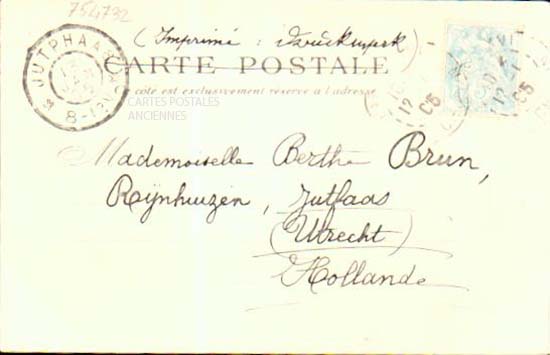 754732
(Imprimé : Drückwerk)
CARTE POSTALE
Ce côté est exclusivement réservé à l'adresse
JUTPHAAS
8-12
12
05
CARTES POSTALES
ANCIENNES
Mademoiselle Berthe Brun,
Rijnhuizen, Jutfaas
(Utrecht)
Hollande